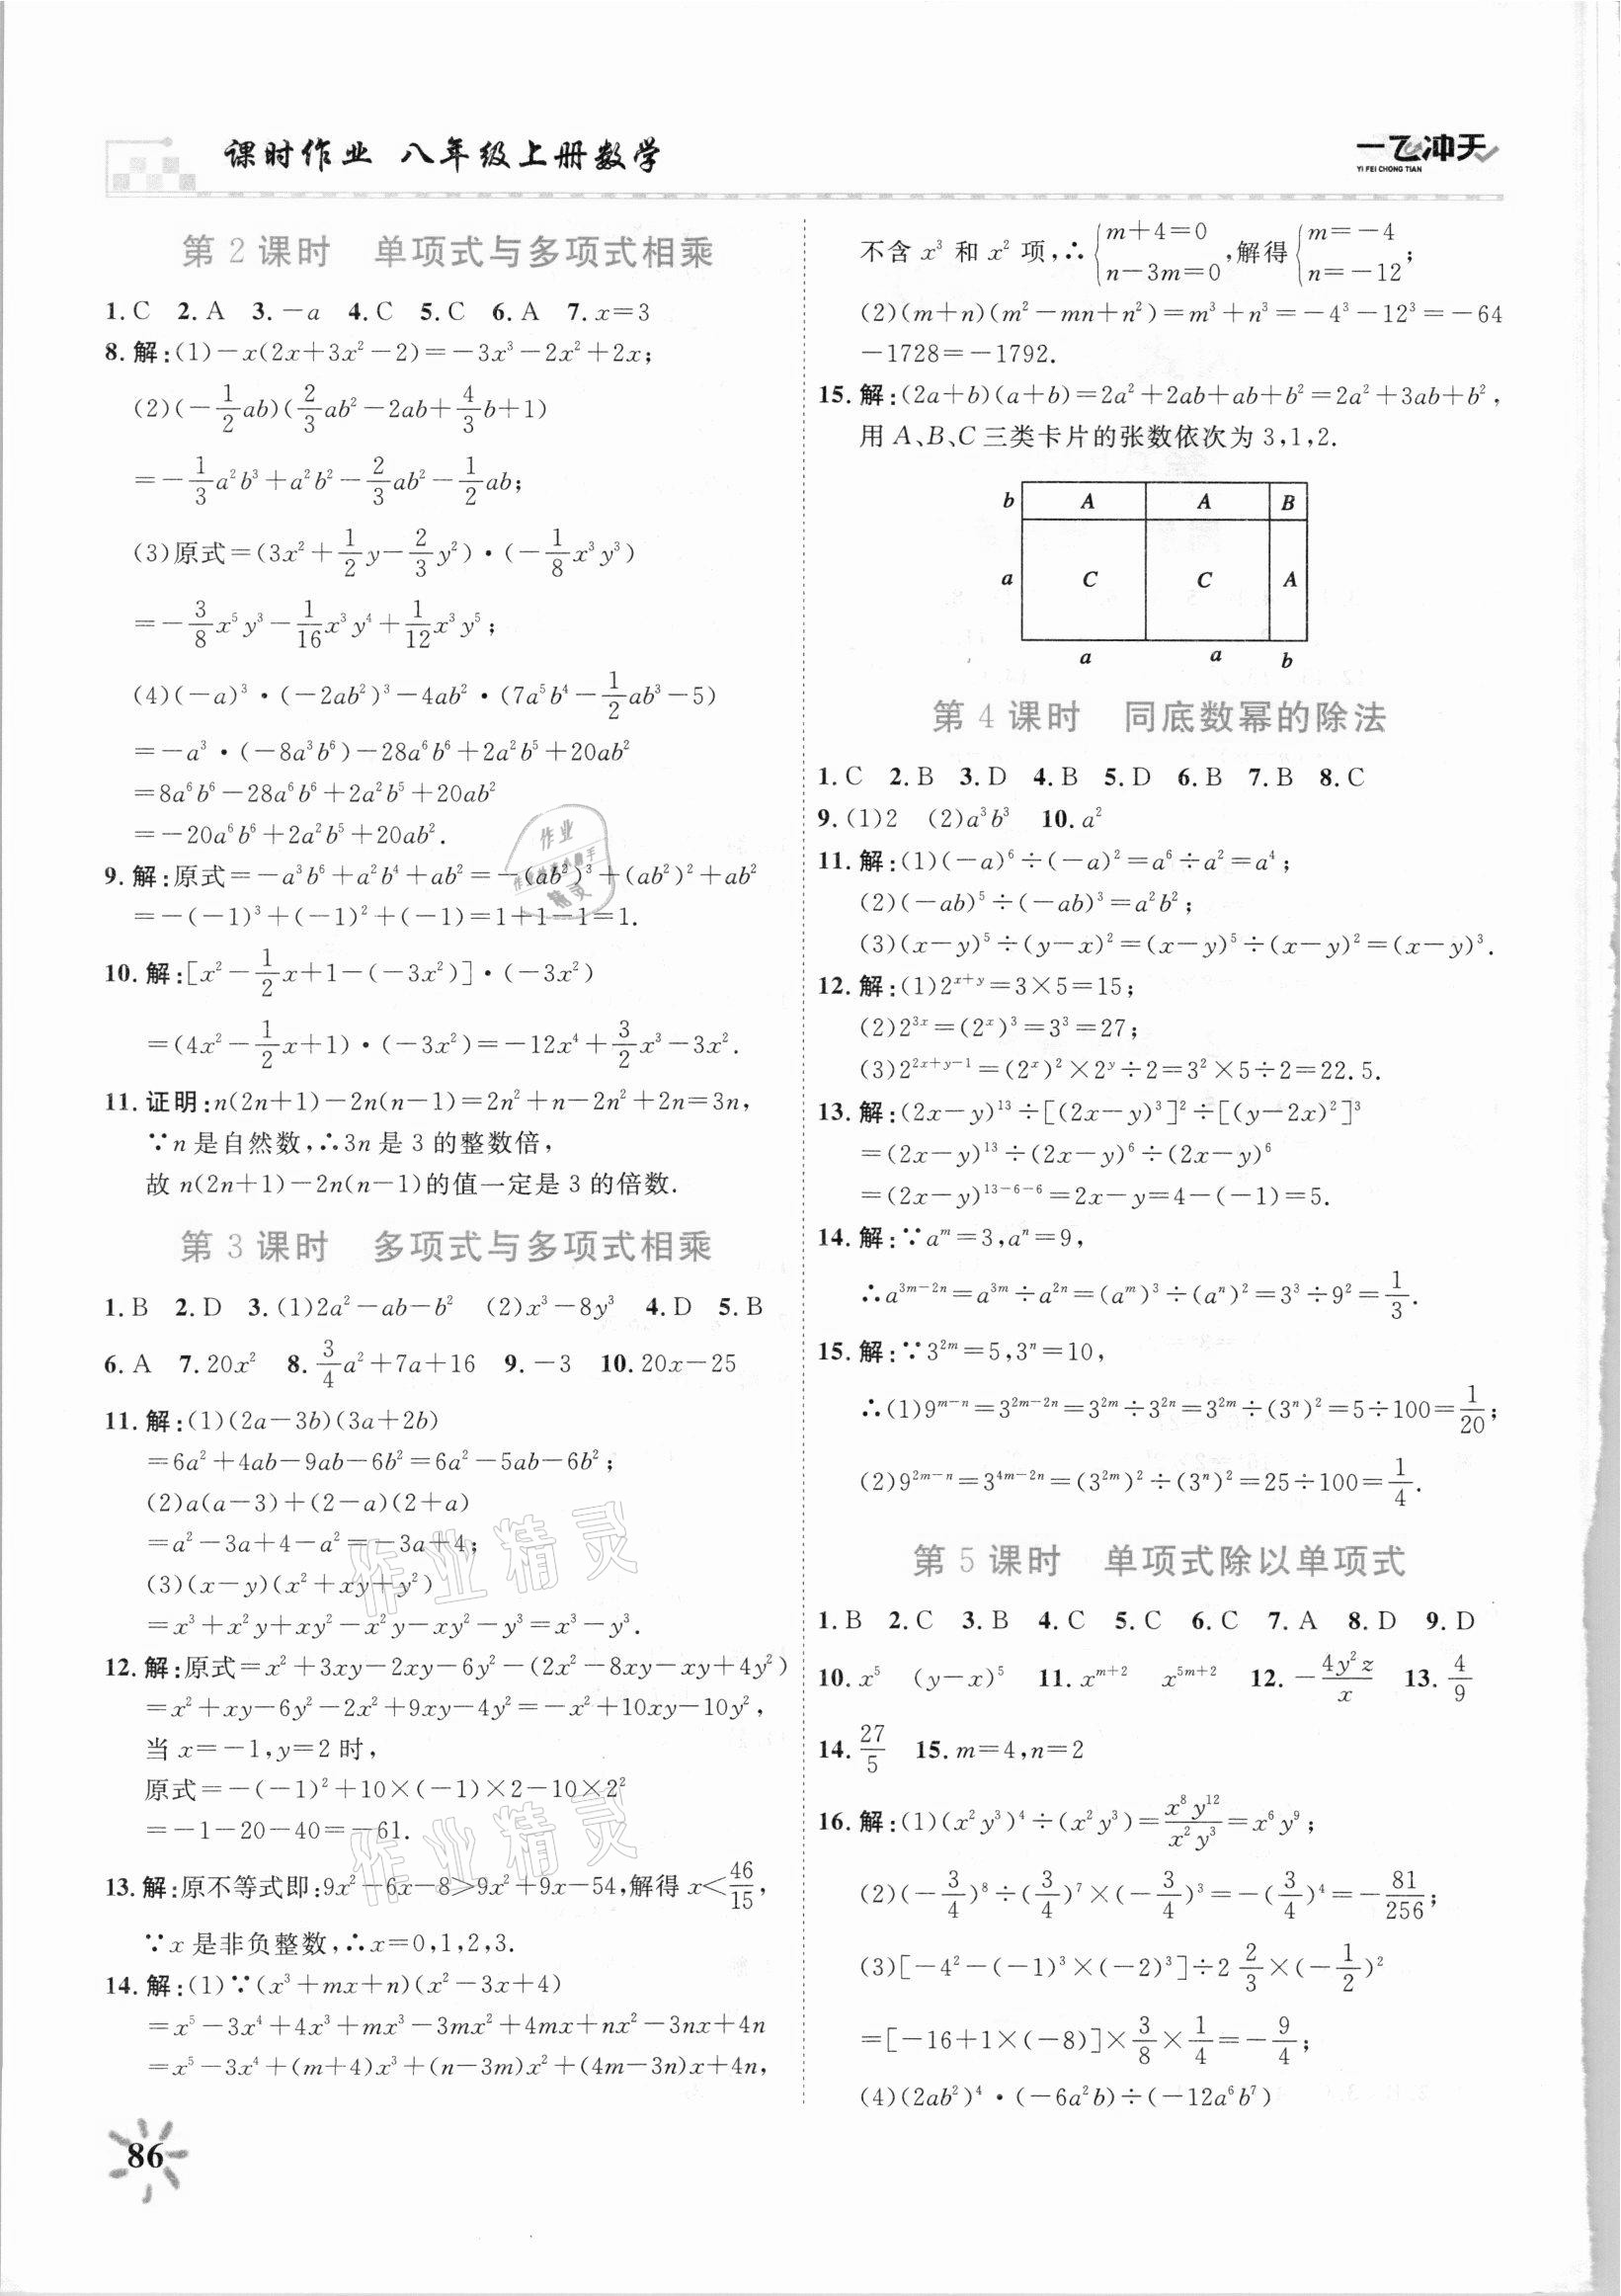 课时作业 八年级上册数学
一飞冲天
YI FEI CHONG TIAN
第2课时 单项式与多项式相乘
1.C 2.A 3.－a 4.C 5.C 6.A 7.x＝3
8.解:(1)－x(2x＋3x²－2)＝－3x³－2x²＋2x;
(2)(－1/2ab)(2/3ab²－2ab＋4/3b＋1)
＝－1/3a²b³＋a²b²－2/3ab²－1/2ab;
(3)原式＝(3x²＋1/2y－2/3y²)·(－1/8x³y³)
＝－3/8x⁵y³－1/16x³y⁴＋1/12x³y⁵;
(4)(－a)³·(－2ab²)³－4ab²·(7a⁵b⁴－1/2ab³－5)
＝－a³·(－8a³b⁶)－28a⁶b⁶＋2a²b⁵＋20ab²
＝8a⁶b⁶－28a⁶b⁶＋2a²b⁵＋20ab²
＝－20a⁶b⁶＋2a²b⁵＋20ab².
9.解:原式＝－a³b⁶＋a²b⁴＋ab²＝－(ab²)³＋(ab²)²＋ab²
＝－(－1)³＋(－1)²＋(－1)＝1＋1－1＝1.
10.解:[x²－1/2x＋1－(－3x²)]·(－3x²)
＝(4x²－1/2x＋1)·(－3x²)＝－12x⁴＋3/2x³－3x².
11.证明:n(2n＋1)－2n(n－1)＝2n²＋n－2n²＋2n＝3n,
∵n是自然数,∴3n是3的整数倍,
故n(2n＋1)－2n(n－1)的值一定是3的倍数.
第3课时 多项式与多项式相乘
1.B 2.D 3.(1)2a²－ab－b² (2)x³－8y³ 4.D 5.B
6.A 7.20x² 8.3/4a²＋7a＋16 9.－3 10.20x－25
11.解:(1)(2a－3b)(3a＋2b)
＝6a²＋4ab－9ab－6b²＝6a²－5ab－6b²;
(2)a(a－3)＋(2－a)(2＋a)
＝a²－3a＋4－a²＝－3a＋4;
(3)(x－y)(x²＋xy＋y²)
＝x³＋x²y＋xy²－x²y－xy²－y³＝x³－y³.
12.解:原式＝x²＋3xy－2xy－6y²－(2x²－8xy－xy＋4y²)
＝x²＋xy－6y²－2x²＋9xy－4y²＝－x²＋10xy－10y²,
当x＝－1,y＝2时,
原式＝－(－1)²＋10×(－1)×2－10×2²
＝－1－20－40＝－61.
13.解:原不等式即:9x²－6x－8＞9x²＋9x－54,解得x＜46/15,
∵x是非负整数,∴x＝0,1,2,3.
14.解:(1)∵(x³＋mx＋n)(x²－3x＋4)
＝x⁵－3x⁴＋4x³＋mx³－3mx²＋4mx＋nx²－3nx＋4n
＝x⁵－3x⁴＋(m＋4)x³＋(n－3m)x²＋(4m－3n)x＋4n,
不含x³和x²项,∴{m＋4＝0 n－3m＝0,解得{m＝－4 n＝－12;
(2)(m＋n)(m²－mn＋n²)＝m³＋n³＝－4³－12³＝－64
－1728＝－1792.
15.解:(2a＋b)(a＋b)＝2a²＋2ab＋ab＋b²＝2a²＋3ab＋b²,
用A、B、C三类卡片的张数依次为3,1,2.
b A A B
a C C A
a a b
第4课时 同底数幂的除法
1.C 2.B 3.D 4.B 5.D 6.B 7.B 8.C
9.(1)2 (2)a³b³ 10.a²
11.解:(1)(－a)⁶÷(－a)²＝a⁶÷a²＝a⁴;
(2)(－ab)⁵÷(－ab)³＝a²b²;
(3)(x－y)⁵÷(y－x)²＝(x－y)⁵÷(x－y)²＝(x－y)³.
12.解:(1)2ˣ⁺ʸ＝3×5＝15;
(2)2³ˣ＝(2ˣ)³＝3³＝27;
(3)2²ˣ⁺ʸ⁻¹＝(2ˣ)²×2ʸ÷2＝3²×5÷2＝22.5.
13.解:(2x－y)¹³÷[(2x－y)³]²÷[(y－2x)²]³
＝(2x－y)¹³÷(2x－y)⁶÷(2x－y)⁶
＝(2x－y)¹³⁻⁶⁻⁶＝2x－y＝4－(－1)＝5.
14.解:∵aᵐ＝3,aⁿ＝9,
∴a³ᵐ⁻²ⁿ＝a³ᵐ÷a²ⁿ＝(aᵐ)³÷(aⁿ)²＝3³÷9²＝1/3.
15.解:∵3²ᵐ＝5,3ⁿ＝10,
∴(1)9ᵐ⁻ⁿ＝3²ᵐ⁻²ⁿ＝3²ᵐ÷3²ⁿ＝3²ᵐ÷(3ⁿ)²＝5÷100＝1/20;
(2)9²ᵐ⁻ⁿ＝3⁴ᵐ⁻²ⁿ＝(3²ᵐ)²÷(3ⁿ)²＝25÷100＝1/4.
第5课时 单项式除以单项式
1.B 2.C 3.B 4.C 5.C 6.C 7.A 8.D 9.D
10.x⁵ (y－x)⁵ 11.xᵐ⁺² x⁵ᵐ⁺² 12.－4y²z/x 13.4/9
14.27/5 15.m＝4,n＝2
16.解:(1)(x²y³)⁴÷(x²y³)＝x⁸y¹²/x²y³＝x⁶y⁹;
(2)(－3/4)⁸÷(3/4)⁷×(－3/4)³＝－(3/4)⁴＝－81/256;
(3)[－4²－(－1)³×(－2)³]÷2 2/3×(－1/2)²
＝[－16＋1×(－8)]×3/8×1/4＝－9/4;
(4)(2ab²)⁴·(－6a²b)÷(－12a⁶b⁷)
86
作业精灵
作业精灵